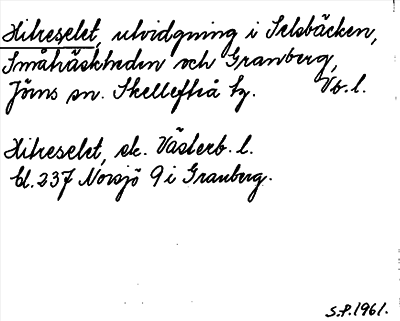 Hitreselet, utvidgning i Selsbäcken,
Småträskheden och Granberg,
Jörns sn. Skellefteå tg. Vb. l.
Hitreselet, ek. Västerb. l.
bl. 237 Norsjö 9 i Granberg.
S.P. 1961.